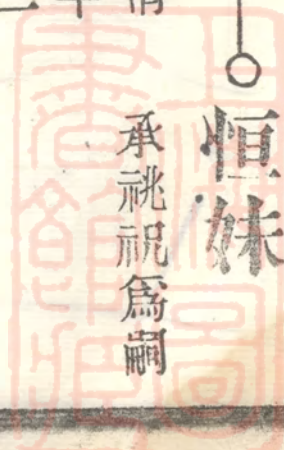 恒妹
承祧祝爲嗣